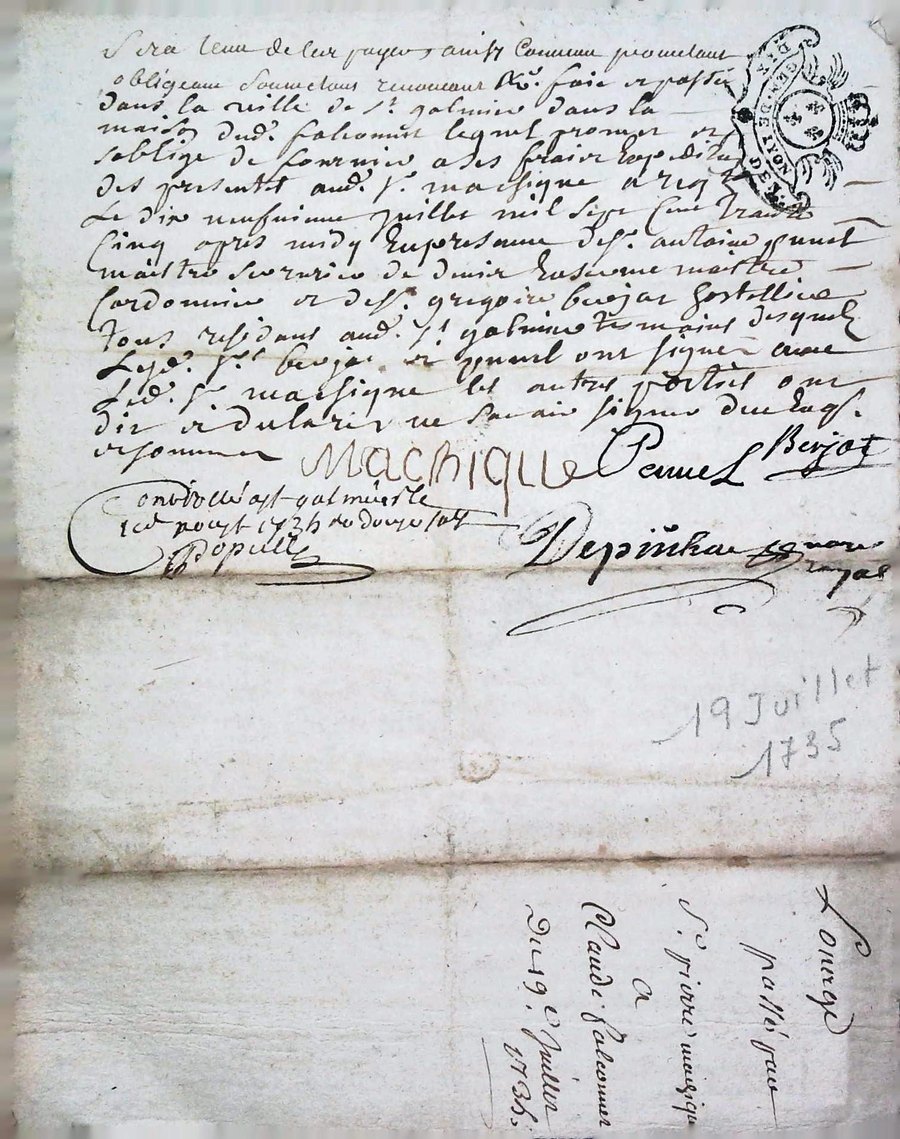 Sera tenu de luy payer ainsy Convenu prometant
obligeant Soumetans renonceant &c. fait et passé
dans la ville de St. galmier dans la
maison dud. falconnet lequel promet et
soblige de fournir a ses fraix Expedition
des presentes aud. Sr. machique
Le dix neufvieme juillet mil Sept Cent Trante
Cinq apres midy En presence de Sr. antoine
maistre Serrurier de denis maitre
Cordonnier et de Sr. gregoire berjat hostellier
tous residans aud. St. galmier tesmoins desquels
Lesd. Srs. berjat et ont signé avec
Led. Sr. machique les autres parties ont
dit et declaré ne Savoir signer de ce Enqs.
et sommés
Machique
Berjat
Controllé a St galmier le
1735 Recu douze sols
Popull
Depinhac
no.re
royal
19 Juillet
1735
DE LYON
Louage
passé par
Sr. pierre machique
a
Claude falconnet
Du 19e. Juillet
1735.